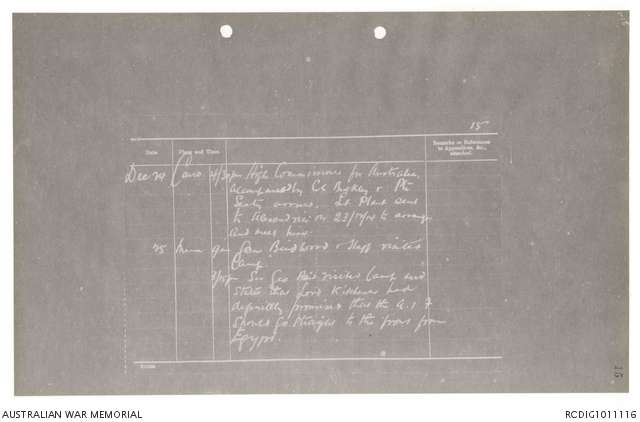 15
Date. Place and Time. Remarks or References
to Appendices, &c.,
attached.
Dec 24 Cairo 4/30pm High Commissioner for Australia
accompanied by Col &
arrived. Lt Plant sent
to Alexandria on 23/12/14 to arrange
and meet him.
25 Mena 9am Gen Birdwood & Staff visited
Camp
Sir Geo Reid visited Camp and
stated that Lord Kitchener had
definitely promised that the A.I.F
should go straight to the front from
Egypt.
15
AUSTRALIAN WAR MEMORIAL RCDIG1011116